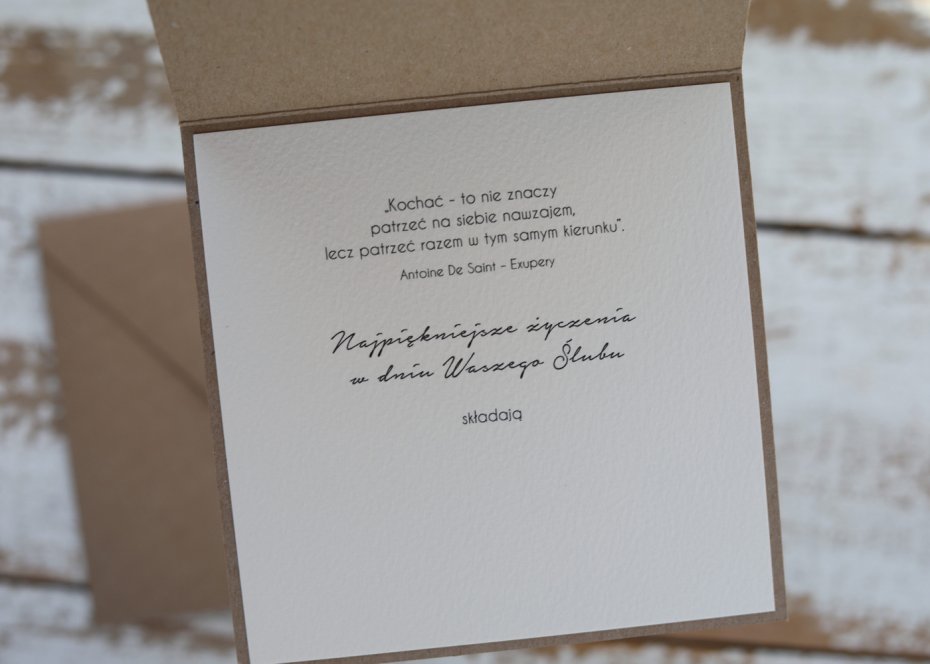 „Kochać - to nie znaczy
patrzeć na siebie nawzajem,
lecz patrzeć razem w tym samym kierunku”.
Antoine De Saint - Exupery
Najpiękniejsze życzenia
w dniu Waszego Ślubu
składają